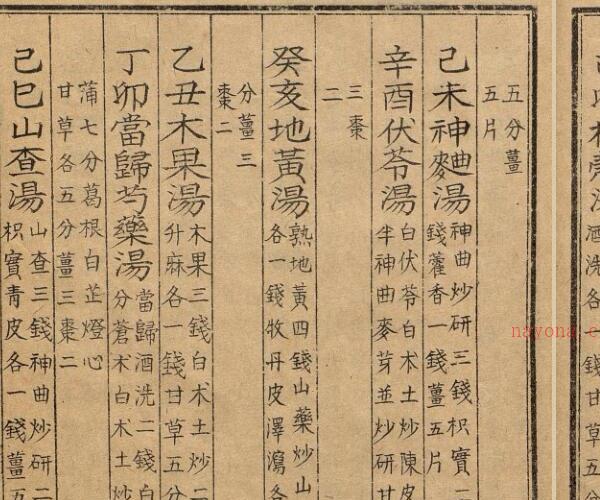 酒洗各一錢甘草五
五分薑
五片
己未神麯湯
神曲炒研三錢枳實
錢藿香一錢薑五片
辛酉伏苓湯
白伏苓白朮土炒陳皮
半神曲麥芽並炒研甘
三棗
二
癸亥地黃湯
熟地黃四錢山藥炒山
各一錢牧丹皮澤瀉各
分薑三
棗二
乙丑木果湯
木果三錢白朮土炒二
升麻各一錢甘草五分
丁卯當歸芍藥湯
當歸酒洗二錢白
分蒼朮白朮土炒
蒲七分葛根白芷燈心
甘草各五分薑三棗二
己巳山查湯
山查三錢神曲炒研二
枳實青皮各一錢薑五
nayona.c